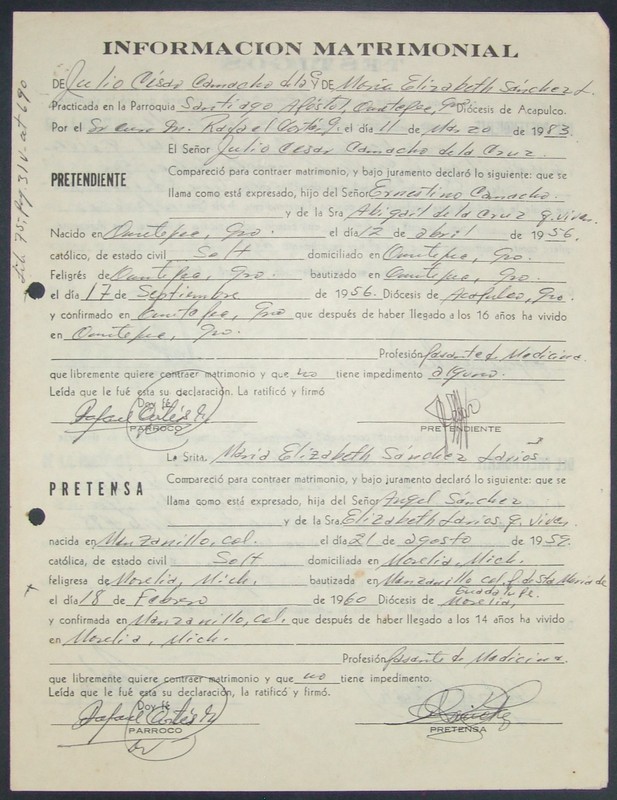 INFORMACION MATRIMONIAL
DE Julio César Camacho de la C. Y DE María Elizabeth Sánchez L.
Practicada en la Parroquia Santiago Apóstol, Ometepec, Gro. Diócesis de Acapulco.
Por el Sr. cura Dn. Rafael Cortés G. el día 11 de Marzo de 1983
El Señor Julio César Camacho de la Cruz
PRETENDIENTE
Compareció para contraer matrimonio, y bajo juramento declaró lo siguiente: que se
llama como está expresado, hijo del Señor Ernestino Camacho.
y de la Sra. Abigail de la Cruz q. viven.
Nacido en Ometepec, Gro. el día 12 de abril de 1956,
católico, de estado civil Solt domiciliado en Ometepec, Gro.
Feligrés de Ometepec, Gro. bautizado en Ometepec, Gro.
el día 17 de Septiembre de 1956. Diócesis de Acapulco, Gro.
y confirmado en Ometepec, Gro que después de haber llegado a los 16 años ha vivido
en Ometepec, Gro.
Profesión Pasante de Medicina.
que libremente quiere contraer matrimonio y que no tiene impedimento alguno.
Leída que le fué esta su declaración. La ratificó y firmó
Doy fé
PARROCO PRETENDIENTE
La Srita. María Elizabeth Sánchez Larios
PRETENSA
Compareció para contraer matrimonio, y bajo juramento declaró lo siguiente: que se
llama como está expresado, hija del Señor Angel Sánchez
y de la Sra. Elizabeth Larios q. viven
nacida en Manzanillo, Col. el día 21 de agosto de 1959.
católica, de estado civil Solt domiciliada en Morelia, Mich.
feligresa de Morelia, Mich. bautizada en Manzanillo Col. P. de Sta María de
Guadalupe.
el día 18 de Febrero de 1960 Diócesis de Morelia,
y confirmada en Manzanillo, Col. que después de haber llegado a los 14 años ha vivido
en Morelia, Mich.
Profesión Pasante de Medicina.
que libremente quiere contraer matrimonio y que no tiene impedimento.
Leída que le fué esta su declaración, la ratificó y firmó.
Doy fé
PARROCO PRETENSA
Lib. 75, Pg. 31 V.